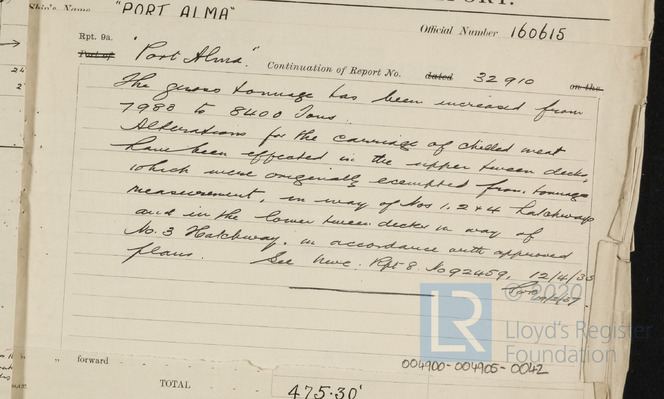 Ship's Name "PORT ALMA"
Official Number 160615
Rpt. 9a.
Port of "Port Alma". Continuation of Report No. dated 32910 on the
The gross tonnage has been increased from
7983 to 8400 Tons.
Alterations for the carriage of chilled meat
have been effected in the upper tween decks,
which were originally exempted from tonnage
measurement, in way of Nos 1, 2 & 4 hatchways
and in the lower tween decks in way of
No. 3 Hatchway, in accordance with approved
plans. See Nwc. Rpt 8. No 92459, 12/4/35
© 2020
Lloyd's Register
Foundation
LR
004900-004905-0042
" forward
TOTAL 475.30'